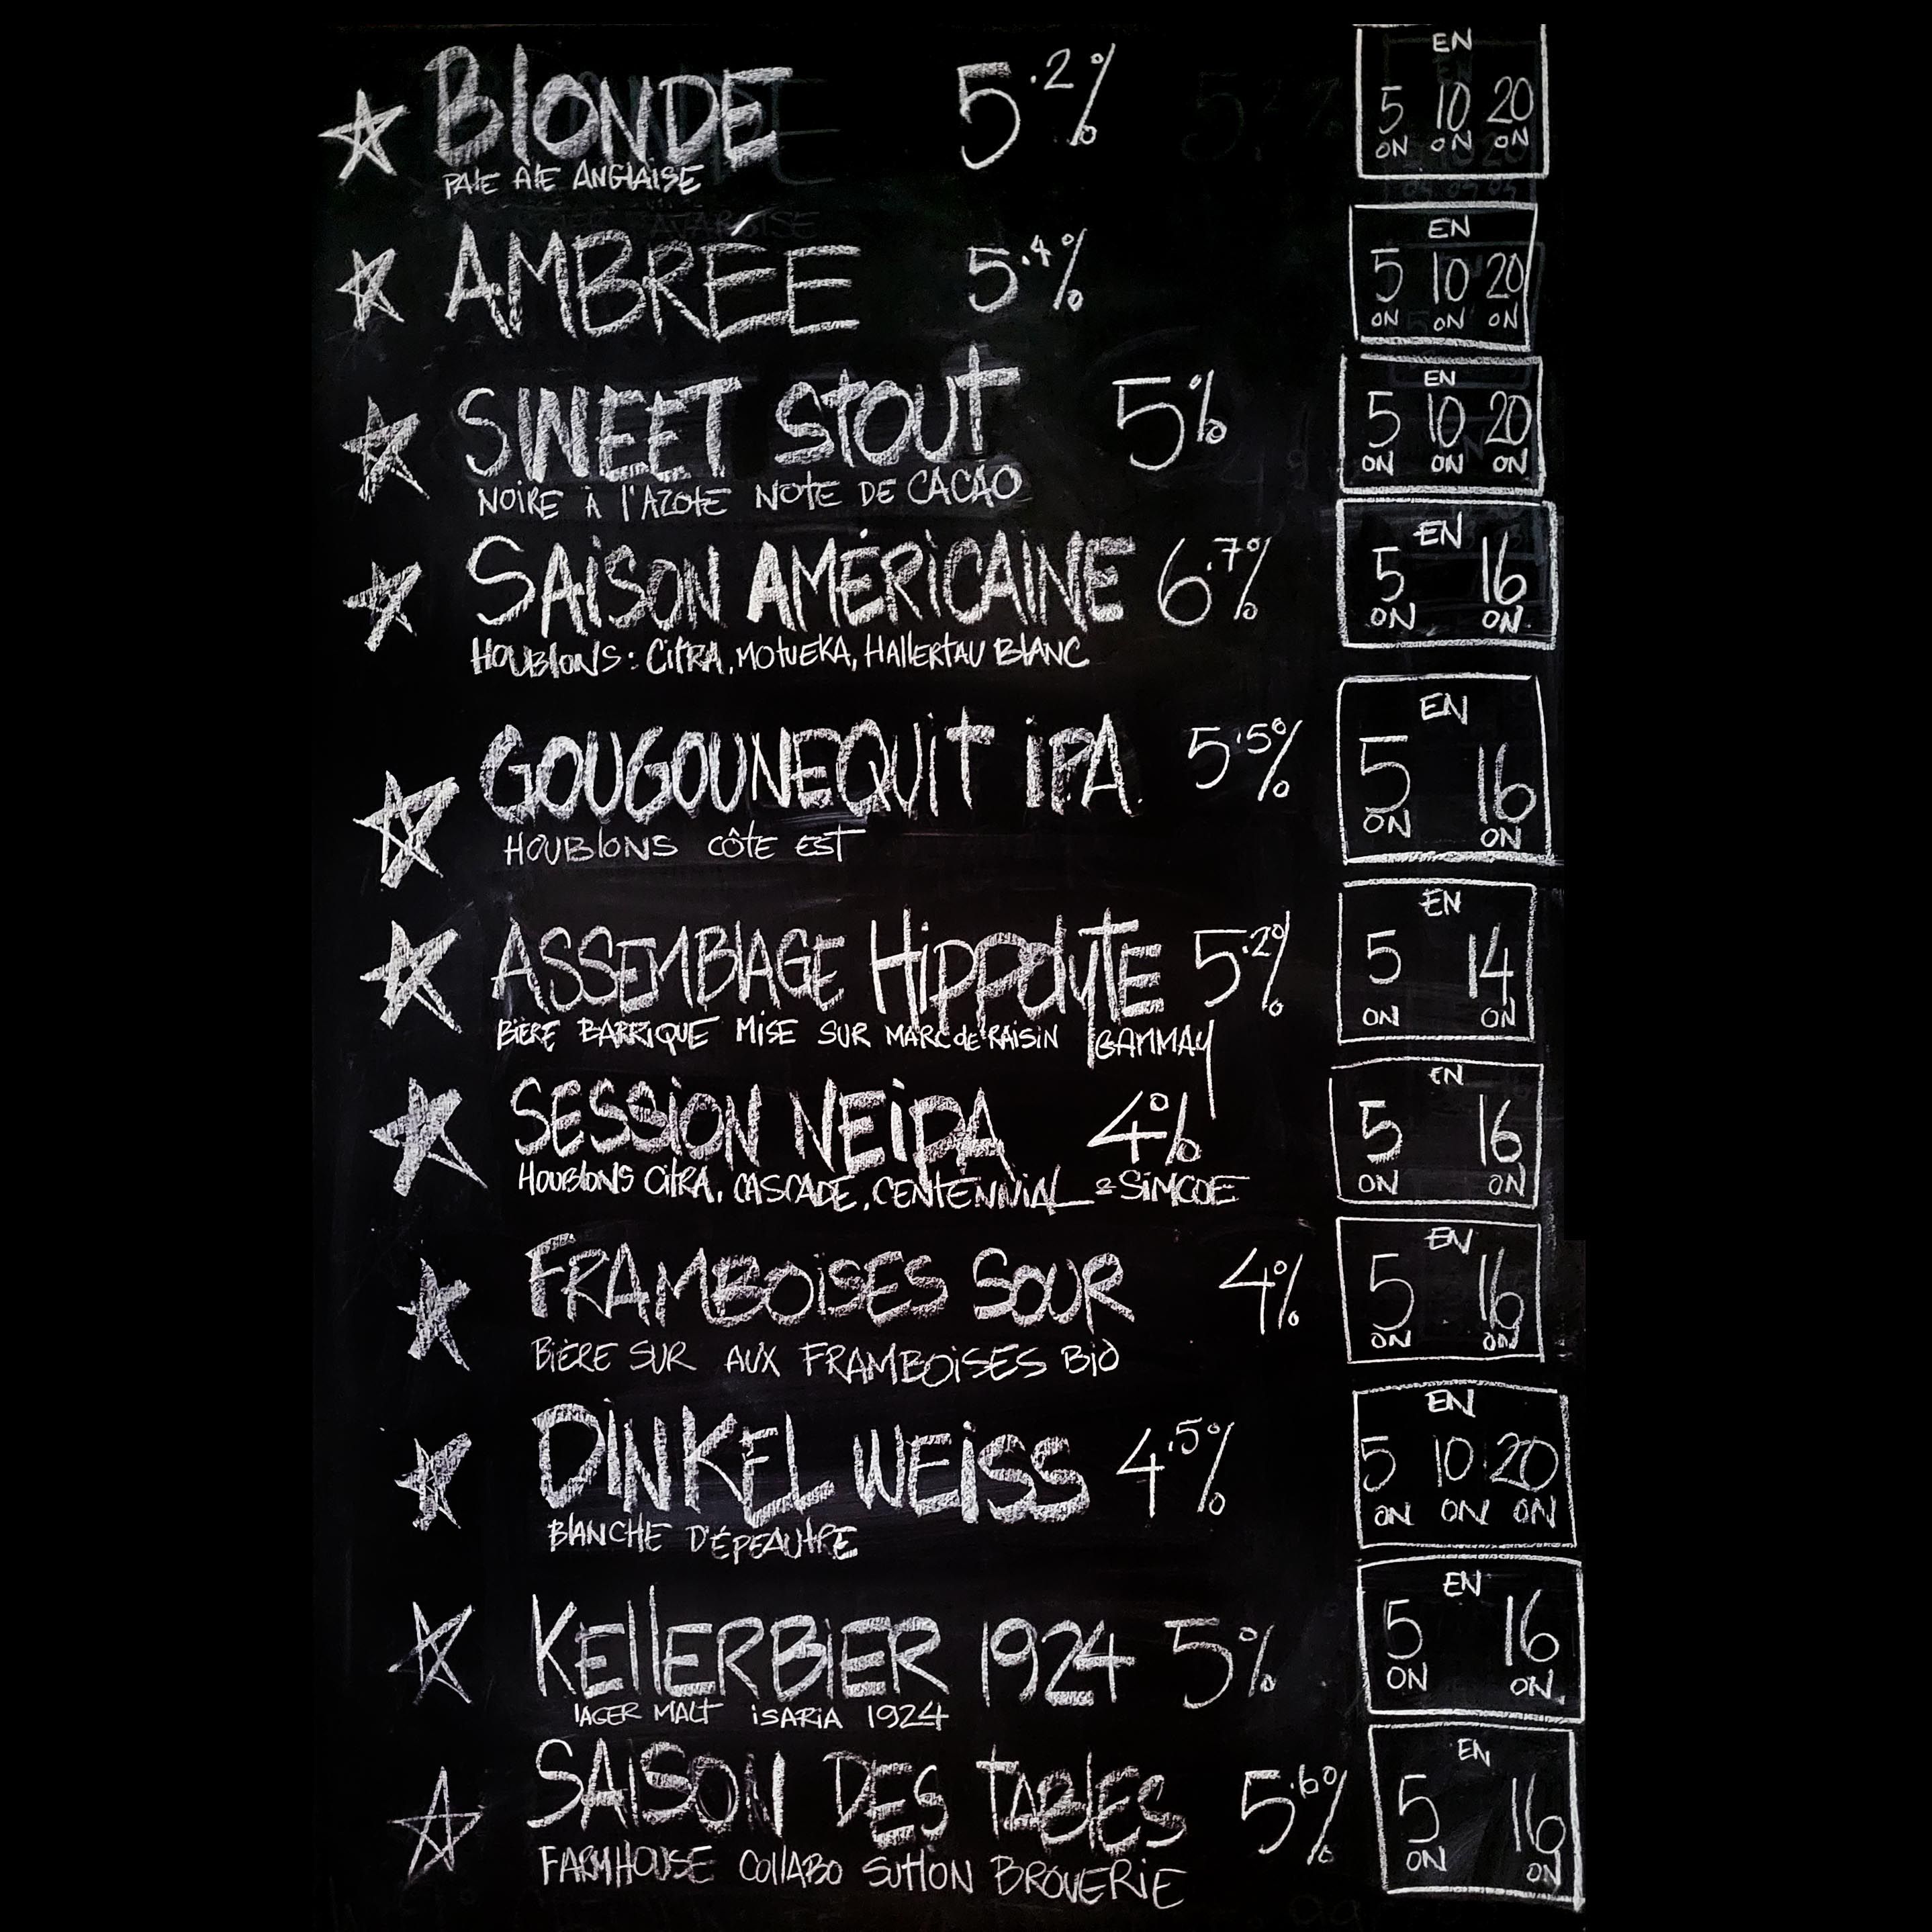 BLONDE 5.2% EN
PALE ALE ANGLAISE 5 ON 10 ON 20 ON
AMBRÉE 5.4% EN
5 ON 10 ON 20 ON
SWEET STOUT 5% EN
NOIRE À L'AZOTE NOTE DE CACAO 5 ON 10 ON 20 ON
SAISON AMÉRICAINE 6.7% EN
HOUBLONS: CITRA, MOTUEKA, HALLERTAU BLANC 5 ON 16 ON
GOUGOUNEQUIT IPA 5.5% EN
HOUBLONS CÔTE EST 5 ON 16 ON
ASSEMBLAGE HIPPOLYTE 5.2% EN
BIÈRE BARRIQUE MISE SUR MARC de RAISIN GAMMAY 5 ON 14 ON
SESSION NEIPA 4% EN
HOUBLONS CITRA, CASCADE, CENTENNIAL & SIMCOE 5 ON 16 ON
FRAMBOISES SOUR 4% EN
BIÈRE SUR AUX FRAMBOISES BIO 5 ON 16 ON
DINKEL WEISS 4.5% EN
BLANCHE D'ÉPEAUTRE 5 ON 10 ON 20 ON
KELLERBIER 1924 5% EN
LAGER MALT ISARIA 1924 5 ON 16 ON
SAISON DES TABLES 5.6% EN
FARMHOUSE COLLABO SUTTON BROUERIE 5 ON 16 ON